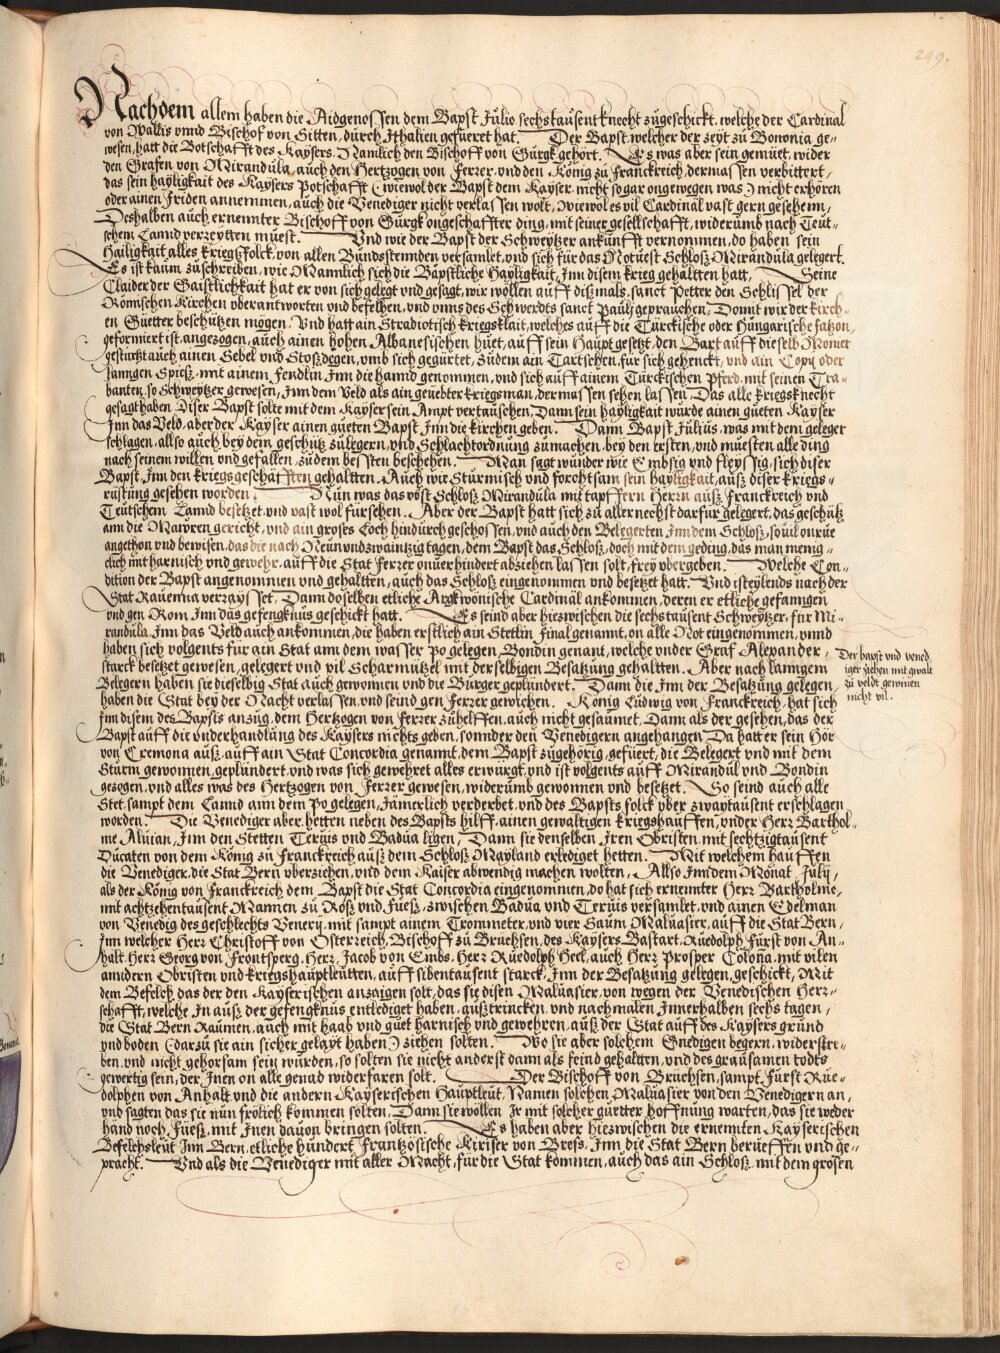 249.
Nachdem allem haben die Aidgenossen dem Bapst Julio sechstausent knecht zugeschickt, welche der Cardinal
von Wallis vnnd Bischof von Sitten, durch Ithalien gefueret hat. Der Bapst, welcher der zeyt zu Bononia ge=
wesen, hatt die Botschafft des Kaysers, Namlich den Bischoff von Gurgk gehört. Es was aber sein gemüet, wider
den Grafen von Mirandula, auch den Hertzogen von Ferrer, vnd den König zu Franckreich, dermassen verbittert,
das sein häyligkait des Kaysers Potschafft (wiewol der Bapst dem Kayser nicht so gar ongewegen was) nicht erhören
oder ainen Friden annemmen, auch die Venediger nicht verlassen wolt, wiewol es vil Cardinäl vast gern gesehenn,
Deshalben auch ernennter Bischoff von Gurgk ongeschaffter ding, mit seiner gesellschafft, widerumb nach Teut=
schem Lannd verreytten muest. Vnd wie der Bapst der Schweytzer ankunfft vernommen, do haben sein
Hailigkait alles kriegsfolck, von allen Bundsstennden versamlet, vnd sich für das Notuest Schloß Mirandula gelegert.
Es ist kaum zuschreiben, wie Mannlich sich die Bäpstliche Hayligkait, Inn disem krieg gehaltten hatt, Seine
Claider der Gaistlichkait hat er von sich gelegt vnd gesagt, wir wöllen auff dißmals, sanct Petter den Schlissel der
Römischen Kirchen vberantworten vnd befelhen, vnd vnns des Schwerdts sanct Pauls geprauchen, Domit wir der kirch=
en Guetter beschützen mögen. Vnd hatt ain Stradiotisch kriegsklait, welches auff die Türckische oder Hungarische fatzon,
geformiert ist, angezogen, auch ainen hohen Albanesischen huet, auff sein Haupt gesetzt, den Bart auff dieselb Monier
gestutzt auch ainen Sebel vnd Stoßdegen, vmb sich gegürtet, zudem ain Tartschen, für sich gehenckt, vnd ain Copy oder
lanngen Spieß, mit ainem fendlin Inn die hannd genommen, vnd sich auff ainem Türckischen Pferd mit seinen Tra=
banten, so Schweytzer gewesen, Inn dem Veld als ain geuebter kriegsman, dermassen sehen lassen, Das alle kriegsknecht
gesagt haben Diser Bapst solte mit dem Kayser sein Ampt vertauschen, Dann sein häyligkait würde ainen gueten Kayser
Inn das Veld, aber der Kayser ainen gueten Bapst Inn die kirchen geben. Dann Bapst Julius, was mit dem geleger
schlagen, allso auch bey dem geschütz zu legern, vnd Schlachtordnung zumachen, bey den ersten, vnd muesten alle ding
nach seinem willen vnd gefallen, zudem bessten beschehen. Man sagt wunder wie Embsig vnd fleyssig, sich diser
Bapst, Inn den kriegsgeschäfften gehaltten. Auch wie Stürmisch vnd forchtsam sein hayligkait, auß diser kriegs=
rüstung gesehen worden. Nun was das vösst Schloß Mirandula mit tapffern Herrn auß Franckreich vnd
Teutschem Lannd besetzet, vnd vast wol fürsehen. Aber der Bapst hatt sich zu aller nechst darfür gelegert, das geschütz
ann die Mauren gericht, vnd ain groses Loch hindurch geschossen, vnd auch den Belegerten Inn dem Schloß, souil onrue
angethon vnd bewisen, das die nach Neun vnd zwaintzig tagen, dem Bapst das Schloß, doch mit dem geding, das man menig=
clich mit harnisch vnd gewehr, auff die Stat Ferrer onuerhindert abziehen lassen solt, frey vbergeben. Welche Con=
dition der Bapst angenommen vnd gehaltten, auch das Schloß eingenommen vnd besetzet hatt. Vnd ist eylends nach der
Stat Rauenna verraysset. Dann doselben etliche Argkwonische Cardinäl ankommen, deren er etliche gefanngen
vnd gen Rom Inn das gefengknus geschickt hatt. Es seind aber hiezwischen die sechstausent Schweytzer, für Mi=
randula Inn das Veld auch ankommen, die haben erstlich ain Stetlin Final genannt, on alle Not eingenommen, vnnd
haben sich volgents für ain Stat ann dem wasser Po gelegen, Bondin genant, welche vnder Graf Alexander,
starck besetzet gewesen, gelegert vnd vil Scharmützel mit derselbigen Besatzung gehaltten. Aber nach lanngem
Belegern haben sie dieselbig Stat auch gewonnen vnd die Burger geplundert. Dann die Inn der Besatzung gelegen,
haben die Stat bey der Nacht verlassen, vnd seind gen Ferrer gewichen. König Ludwig von Franckreich, hat sich
Inn disem des Bapsts anzug, dem Hertzogen von Ferrer zuhelffen, auch nicht gesaumet. Dann als der gesehen, das der
Bapst auff die vnderhandlung des Kaysers nichts geben, sonnder den Venedigern angehangen Da hat er sein Hör
von Cremona auß, auff ain Stat Concordia genannt, dem Bapst zugehörig, gefüert, die Belegert vnd mit dem
Sturm gewonnen, geplündert, vnd was sich gewehret alles erwürgt, vnd ist volgents auff Mirandul vnd Bondin
gezogen, vnd alles was des Hertzogen von Ferrer gewesen, widerumb gewonnen vnd besetzet. So seind auch alle
Stet, sampt dem Lannd ann dem Po gelegen, Jämerlich verderbet, vnd des Bapsts folck vber zwaytausent erschlagen
worden. Die Venediger aber, hetten neben des Bapsts hilff, ainen gewaltigen kriegshauffen, vnder Herr Barthol=
me Aluian, Inn den Stetten Teruis vnd Badua ligen, Dann sie denselben Iren Obristen, mit sechtzigtausent
Ducaten von dem König zu Franckreich auß dem Schloß Mayland erlediget hetten. Mit welchem hauffen
die Venediger, die Stat Bern vberziehen, vnd dem Kaiser abwendig machen wolten, Allso Inn dem Monat Julij,
als der König von Franckreich dem Bapst die Stat Concordia eingenommen, do hat sich ernennter Herr Bartholme,
mit achtzehentausent Mannen zu Roß vnd Fueß, zwischen Badua vnd Teruis versamlet, vnd ainen Edelman
von Venedig des geschlechts Venery, mit sampt ainem Trommeter, vnd vier Saum Maluasier, auff die Stat Bern,
Inn welcher Herr Christoff von Osterreich, Bischoff zu Bruchsen, des Kaysers Bastart, Ruedolph Fürst von An=
halt, Herr Georg von Frontsperg, Herr Jacob von Embs, Herr Ruedolph Hecl, auch Herr Prosper Colona, mit vilen
anndern Obristen vnd kriegshauptleutten, auff sibentausent starck, Inn der Besatzung gelegen, geschickt, Mit
dem Befelch das der den Kayserischen anzaigen solt, das sie disen Maluasier, von wegen der Venedischen Herr=
schafft, welche In auß der gefengknus entlediget haben, außtrincken, vnd nachmalen Innerhalben sechs tagen,
die Stat Bern Raumen, auch mit haab vnd guet harnisch vnd gewehren, auß der Stat auff des Kaysers grund
vnd boden (darzu sie ain sicher gelayt haben) ziehen solten. Wo sie aber solchem Gnedigen begern, widerstre=
ben, vnd nicht gehorsam sein wurden, so solten sie nicht anderst dann als feind gehaltten, vnd des grausamen todts
gewertig sein, der Inen on alle genad widerfaren solt. Der Bischoff von Bruchsen, sampt Fürst Rue=
dolphen von Anhalt, vnd die andern Kayserischen Hauptleut, Namen solchen Maluasier von den Venedigern an,
vnd sagten das sie nun frölich kommen solten, Dann sie wöllen Ir mit solcher guetter hoffnung warten, das sie weder
hand noch Fueß, mit Inen dauon bringen solten. Es haben aber hiezwischen die ernennten Kayserischen
Befelchsleut Inn Bern, etliche hundert Frantzösische Kiriser von Bress, Inn die Stat Bern berueffen vnd ge=
pracht. Vnd als die Venediger mit aller Macht, für die Stat kommen, auch das ain Schloß, mit dem grosen
Der bapst vnd vened
iger ziehen mit gwalt
zu veldt gewinen
nicht vil.